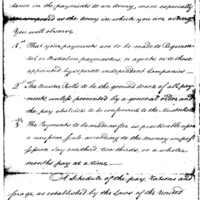 dence in the payments to an army, more especially
composed as the army in which you are acting
You will observe.
1st That your payments are to be made to Regimen-
tal or Battalion paymasters, or agents, or to those
appointed by separate independent Companies
2d The Muster Rolls to be the ground work of all pay-
ments unless prevented by a general order and
the pay abstracts to be conformed to the Muster Rolls
3d The Payments to be made as far as practicable upon
a uniform scale according to the money in pos-
session
months pay at a time.
A Schedule of the pay, Rations and
forage, as established by the Laws of the United